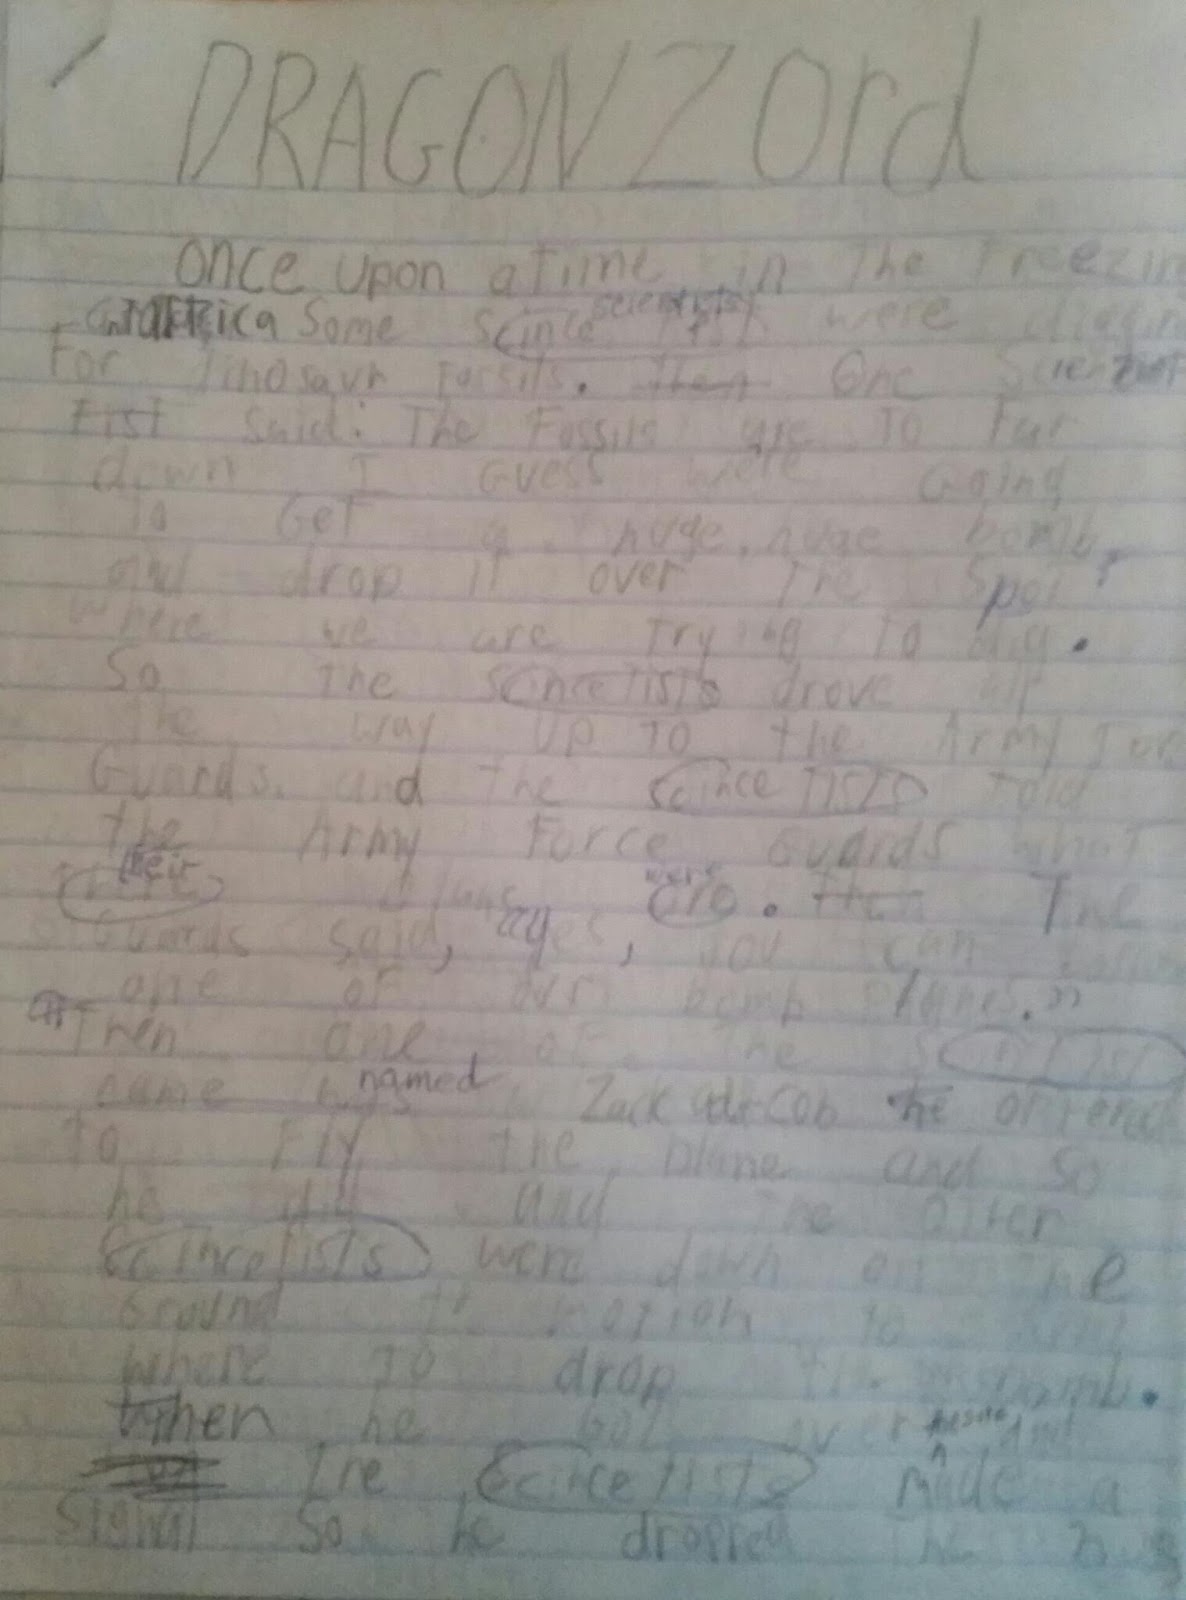 DRAGONZOrd
Once upon a Time in The Freezin
Some Scince scientists were diggin
For Dinosaur Fossils. Then One Scientist
Tist Said: The Fossils are To Far
down I Guess were Going
To GeT a huge, huge bomb,
and drop iT over The SpoT
Where we are Trying To dig.
So The ScinceTisTs drove all
The way up To The Army For
Guards. and The ScinceTisTs Told
The Army Force Guards whaT
their plans were are. Then The
Guards said, "yes, you can
one of our bomb planes."
Then one of The
came named Zack he offered
To Fly The plane and So
he did and The OTher
ScinceTisTs were down on The
Ground To moTion To him
Where To drop The bomb.
When he GoT over the site and
The ScinceTisTs made a
Signal So he dropped The